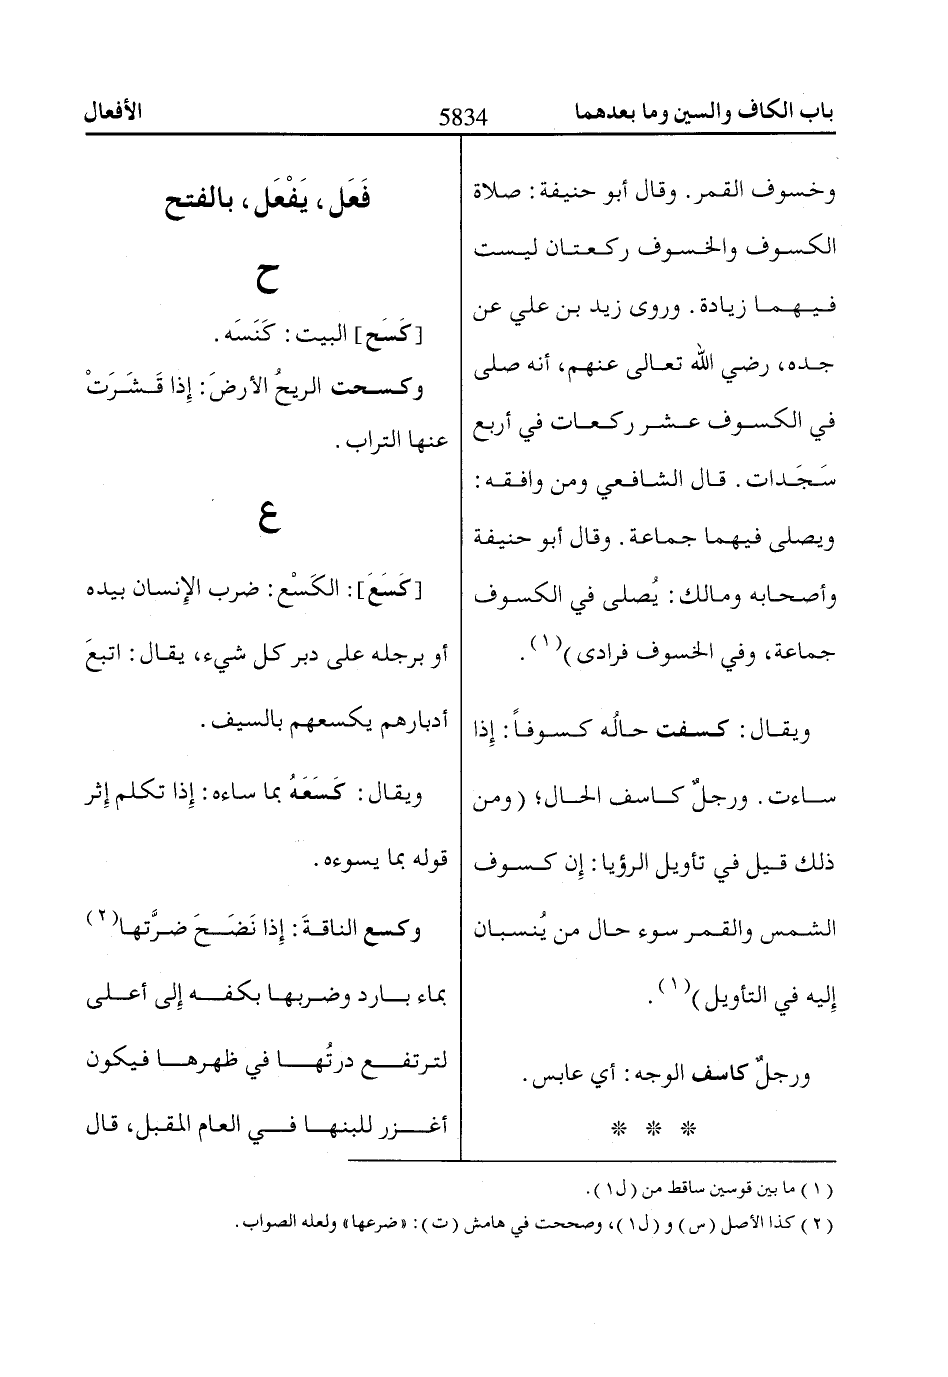 باب الكاف والسين وما بعدهما
5834
الأفعال
وخسوف القمر. وقال أبو حنيفة: صلاة
الكسوف والخسوف ركعتان ليست
فيهما زيادة. وروى زيد بن علي عن
جده، رضي الله تعالى عنهم، أنه صلى
في الكسوف عشر ركعات في أربع
سَجَدات. قال الشافعي ومن وافقه:
ويصلى فيهما جماعة. وقال أبو حنيفة
وأصحابه ومالك: يُصلى في الكسوف
جماعة، وفي الخسوف فرادى)(١).
ويقال: كسفت حالُه كسوفاً: إذا
ساءت. ورجلٌ كاسف الحال؛ (ومن
ذلك قيل في تأويل الرؤيا: إن كسوف
الشمس والقمر سوء حال من يُنسبان
إليه في التأويل)(١).
ورجلٌ كاسف الوجه: أي عابس.
* * *
فَعَل، يَفْعَل، بالفتح
ح
[كَسَح] البيت: كَنَسَه.
وكسحت الريحُ الأرضَ: إذا قَشَرَتْ
عنها التراب.
ع
[كَسَعَ]: الكَسْع: ضرب الإنسان بيده
أو برجله على دبر كل شيء، يقال: اتبعَ
أدبارهم يكسعهم بالسيف.
ويقال: كَسَعَهُ بما ساءه: إذا تكلم إثر
قوله بما يسوءه.
وكسع الناقةَ: إذا نَضَحَ ضرَّتها(٢)
بماء بارد وضربها بكفه إلى أعلى
لترتفع درتُها في ظهرها فيكون
أغزر للبنها في العام المقبل، قال
(١) ما بين قوسين ساقط من (ل١).
(٢) كذا الأصل (س) و (ل١)، وصححت في هامش (ت): «ضرعها» ولعله الصواب.